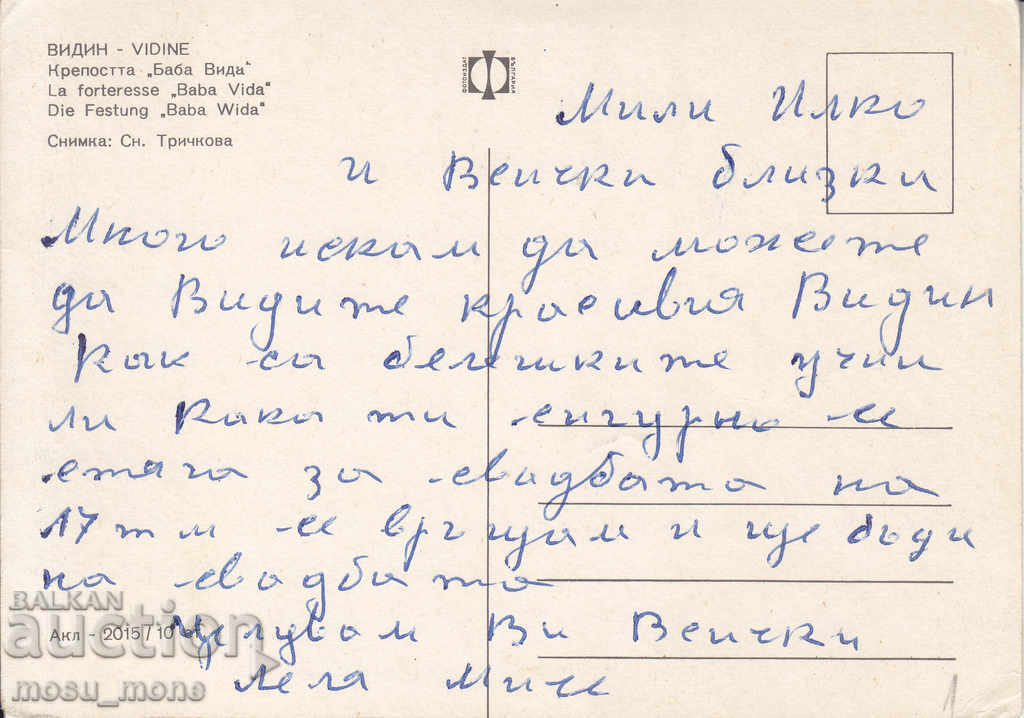 ВИДИН - VIDINE
Крепостта „Баба Вида"
La forteresse „Baba Vida"
Die Festung „Baba Wida"
Снимка: Сн. Тричкова
ФОТОИЗДАТ
БЪЛГАРИЯ
Мили Илко
и Всички близки
Много искам да можете
да Видите красивия Видин
Как са бележките учи
ли Кака ти сигурно се
стяга за свадбата на
17 т м се връщам и ще бъди
на свадбата
Целувам Ви Всички
Леля Мице
Акл - 2015/10 от
BALKAN
auction
mosu_mone
1